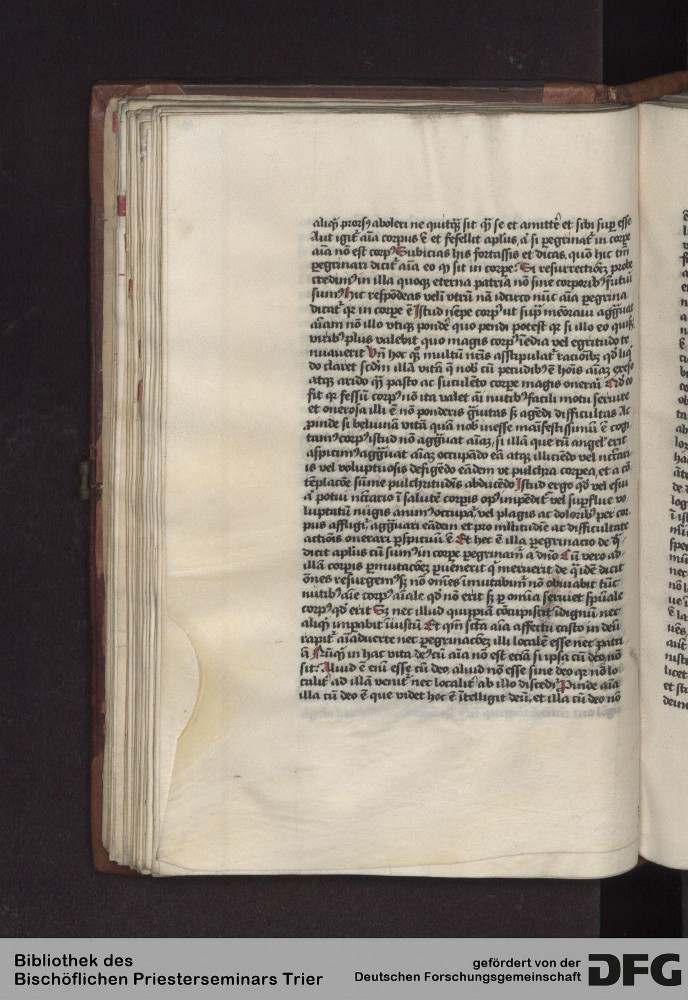 aliqͥ prorsꝰ aboleri ne quitqͥ sit qͥ se et amittē et sibi sup esse
Aut igit̄ aīa corpus ē et fefellit aplus, a si peregrinat̄ in corpe
aīa nō est corpꝰ Subicias his fortassis et dicas, quō hic tm̄
peregrinari dicit aīa eo qͥ sit in corpe: Si resurrectiōeꝫ probe
credimꝰ in illa quoqꝫ eterna patria nō sine corporibꝰ futuri
sumꝰ hic respōdeas velī vtrū nā idcirco nūc aīa peregrina
dicat̄ qꝛ in corpe ē Istud nēpe corpꝰ ut supͣ mēoraui aggͣuat
aīam nō illo vtiqꝫ pondē quo pendi potest qꝛ si illo eo
viribꝰ plus valebit quo magis corpꝰ īedia vel egritudo te
nuauerit Vñ hoc qͥ multū nrīs astipulat̄ rationibꝫ qd̄ liq
do claret scd̄m illā vitā qͣ nob cū pecudibꝰ ē hoīs aīaꝫ
atqꝫ arido qͣ pasto ac suculēto corpe magis onerari
fit qꝛ fessū corpꝰ nō ita valet aī nutibꝰ facili motu seruire
et onerosa illi ē nō ponderis gͣuitas sꝫ agēdi difficultas Ac
pinde si beluinā vitā quā nob inesse māifestissimū ē cogi
tamꝰ corpꝰ istud nō aggͣuat aīaꝫ, si illā que cū angelꝭ erit
aspicimꝰ aggͣuat aīaꝫ occupādo eā atqꝫ illiciēdo vel nc̄rari
is vel voluptuosis defigēdo eādem vt pulchra corpea, et a cō
tēplacōe sūme pulchritudīs abducēdo Istud ergo qd̄ vel esui
ī potui nc̄rario ī salutē corpis opꝰ impēdit vel supflue vo
luptatū nugis animꝰ occupat̄, vel plagis ac doloribꝰ per cor
pus affligit̄, aggͣuari eādem et pro mltitudīe ac difficultate
actiōis onerari pspicuū ē Et hec ē illa peregrinatio de qͣ
dicit aplus cū sumꝰ in corpe peregrinamͬ a dn̄o Cū vero ad
illā corpis pmutacōeꝫ puenerit qͥ meruerit de qͣ idē dicit
ōnes resurgemꝰ sꝫ nō om̄es īmutabimͬ nō obuiabit tūc
nutibꝰ aīe corpꝰ aīale qd̄ nō erit sꝫ p omīa seruiet spūale
corpꝰ qd̄ erit Sꝫ nec illud quippiā cōcupiscet īdignū nec
aliqͥ impabit īiustū Et qm̄ scā aīa affectu casto in deū
rapit̄ aīaduerte nec peregrinacōeꝫ illi localē esse nec patri
ā Nūqͥ in hac vita deꝰ cū aīa nō est eciā si ipsa cū deo nō
sit: Aliud ē enī esse cū deo, aliud nō esse sine deo qꝛ nō lo
calit̄ ad illā venit̄ nec localit̄ ab illo discedit̄ Pinde aīa
illa cū deo ē que videt hoc ē ītelligit deū, et illa cū deo nō
Bibliothek des
Bischöflichen Priesterseminars Trier
gefördert von der
Deutschen Forschungsgemeinschaft
DFG